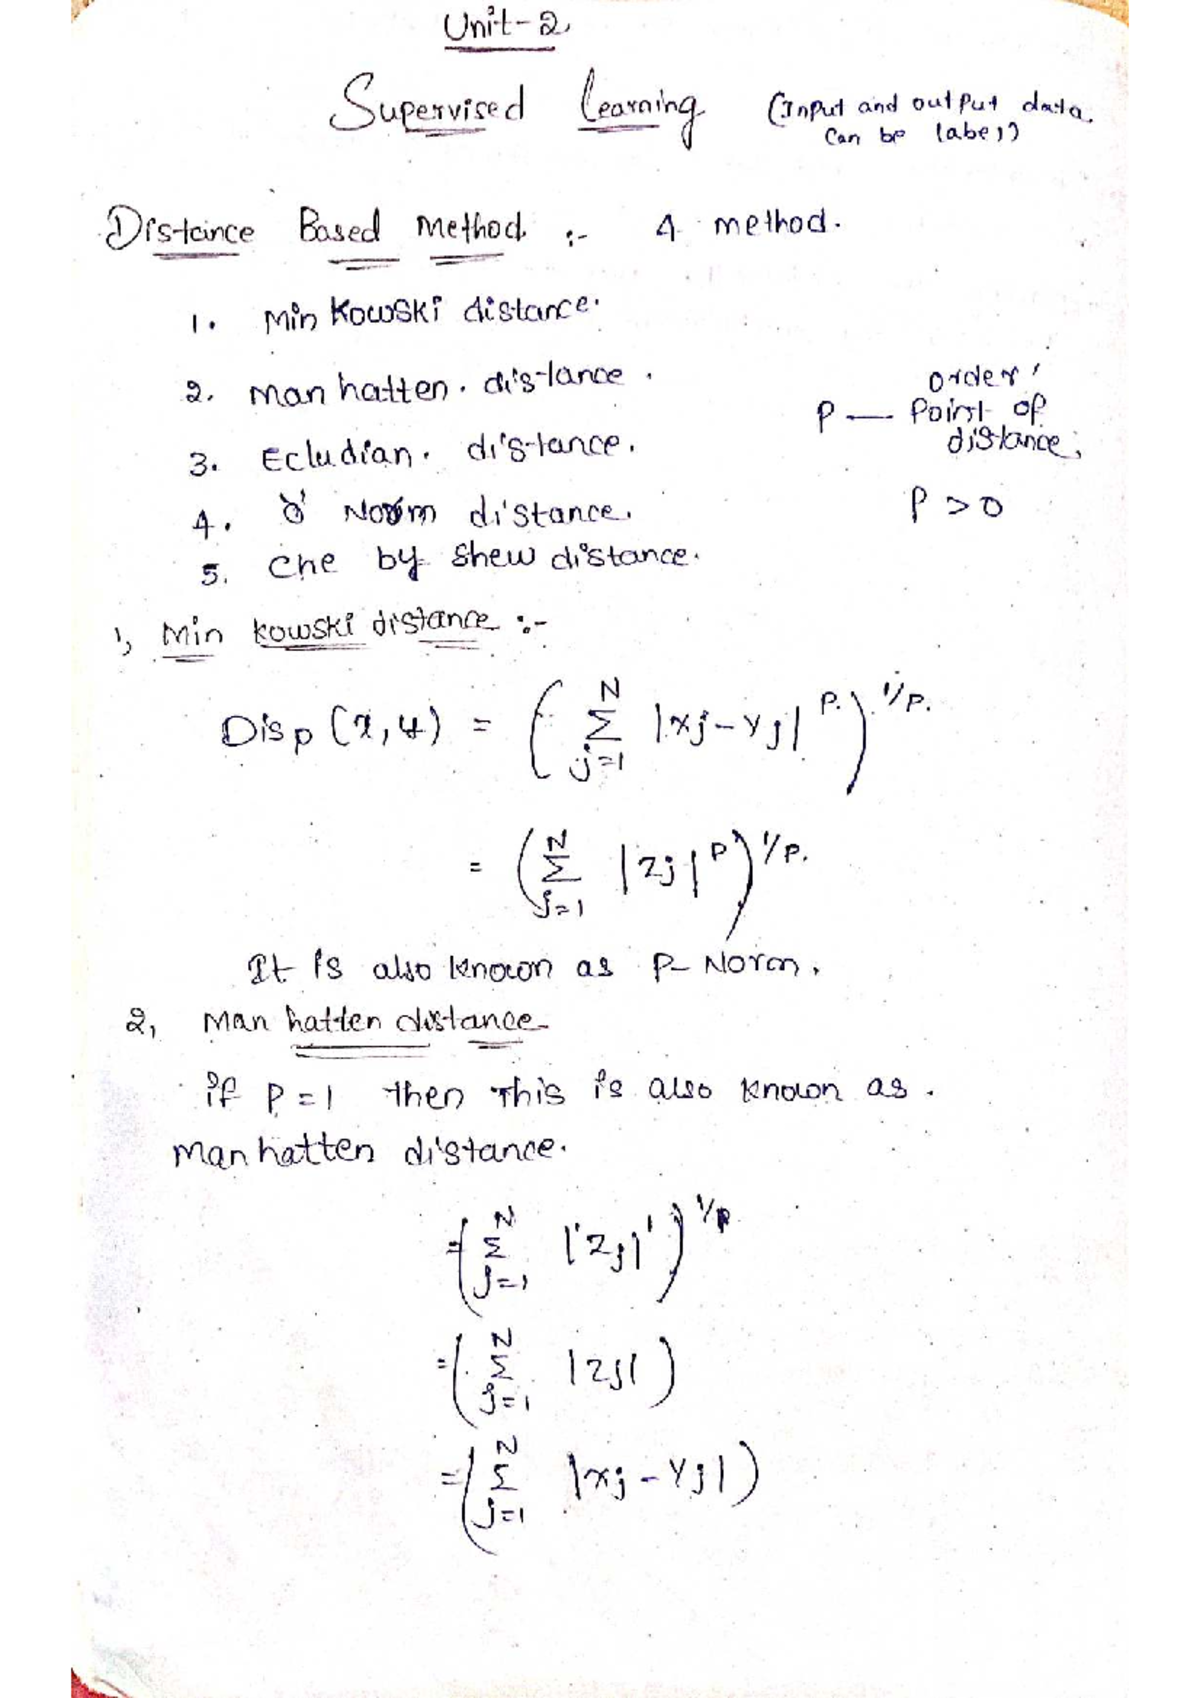 Unit-2
Supervised Learning (Input and output data
can be label)
Distance Based Method :- 4 method.
1. Min Kowski distance.
2. Man hatten. distance.
3. Ecludian. distance.
4. Norm distance.
5. Che by shew distance.
order
P — Point of
distance,
P > 0
1, Min kowski distance :-
Disp (x, y) = ( N Σ j=1 |xj - yj| P. ) 1/P.
= ( N Σ j=1 |zj| P ) 1/P.
It is also known as P- Norm.
2, Man hatten distance
if P = 1 then This is also known as.
Man hatten distance.
= ( N Σ j=1 |zj| 1 ) 1/P
= ( N Σ j=1 |zj| )
= ( N Σ j=1 |xj - yj| )